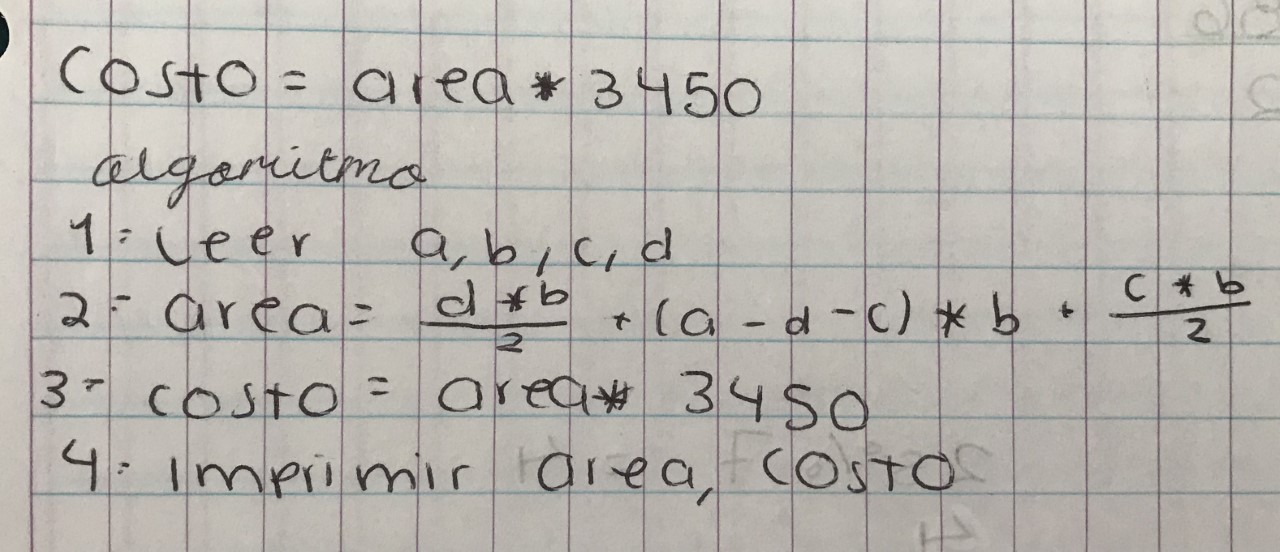 Costo = area * 3450
algoritmo
1- Leer a, b, c, d
2- area = d * b / 2 + (a - d - c) * b + c * b / 2
3- costo = area * 3450
4- Imprimir area, costo